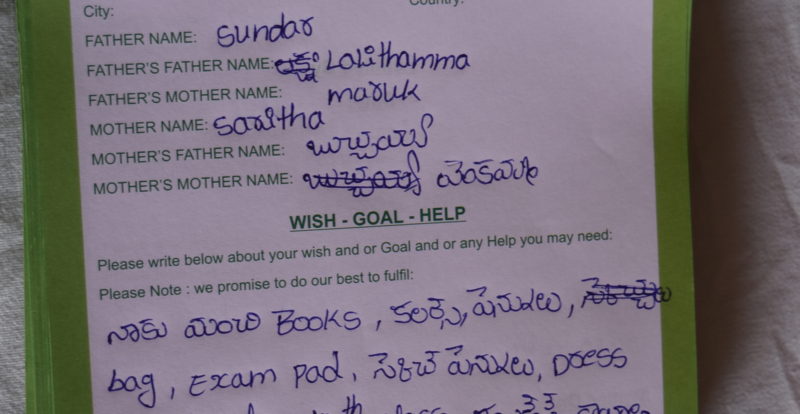 City: Country:
FATHER NAME: Sundar
FATHER'S FATHER NAME: Lalithamma
FATHER'S MOTHER NAME: maruk
MOTHER NAME: Saritha
MOTHER'S FATHER NAME: బుచ్చయ్య
MOTHER'S MOTHER NAME: వెంకమ్మ
WISH - GOAL - HELP
Please write below about your wish and or Goal and or any Help you may need:
Please Note : we promise to do our best to fulfil:
నాకు మంచి BOOKS, కలర్స్, పెనులు,
bag, Exam pad, పెనులు, Dress